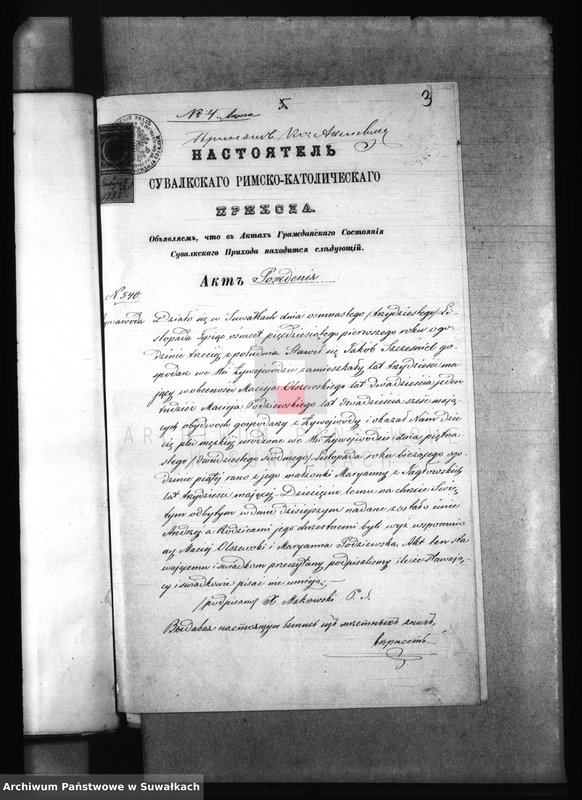 № 4.
3
НАСТОЯТЕЛЬ
СУВАЛКСКАГО РИМСКО-КАТОЛИЧЕСКАГО
ПРИХОДА.
Объявляемъ, что въ Актахъ Гражданскаго Состоянія
Сувалкскаго Прихода находится слѣдующій.
Актъ Рожденія
№ 540.
Działo się w Suwałkach dnia osmnastego /trzydziestego/ Li-
stopada tysiąc osmset pięćdziesiątego pierwszego roku o go-
dzinie trzeciej z południa Stawił się Jakób Szczesniel go-
spodarz we Wsi Żywejwodzie zamieszkały lat trzydzieści ma-
jący w obecności Macieja Olszewskiego lat dwadzieścia jeden
tudzież Macieja Podziewskiego lat dwadzieścia sześć mają-
cych obydwóch gospodarzy z Żywejwody i okazał Nam dzie-
cię płci męzkiej urodzone we Wsi Żywejwodzie dnia piętna-
stego /dwudziestego siódmego/ Listopada roku bieżącego o go-
dzinie piątej rano z jego małżonki Maryanny z
lat trzydzieści mającej. Dziecięciu temu na chrzcie Świę-
tym odbytym w dniu dzisiejszym nadane zostało imie
Andrzej a Rodzicami jego chrzestnemi byli wyż wspomnio-
ny Maciej Olszewski i Maryanna Podziewska. Akt ten sta-
wającemu i świadkom przeczytany, podpisaliśmy ileże Stawają-
cy i świadkowie pisać nie umieją.
/podpisany/ X Makowski P. S.
Выдавая настоящую выпись изъ мѣстныхъ книгъ,
вѣрность
ARCHIWUM PAŃSTWOWE
Archiwum Państwowe w Suwałkach